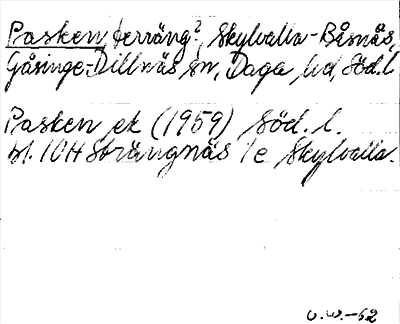 Pasken, terräng?, Skylvalla-Båsnäs,
Gåsinge-Dillnäs sn, Daga hd, Söd. l
Pasken ek (1959) Söd. l.
bl. 10H Strängnäs 1e Skylvalla.
U.W.-62